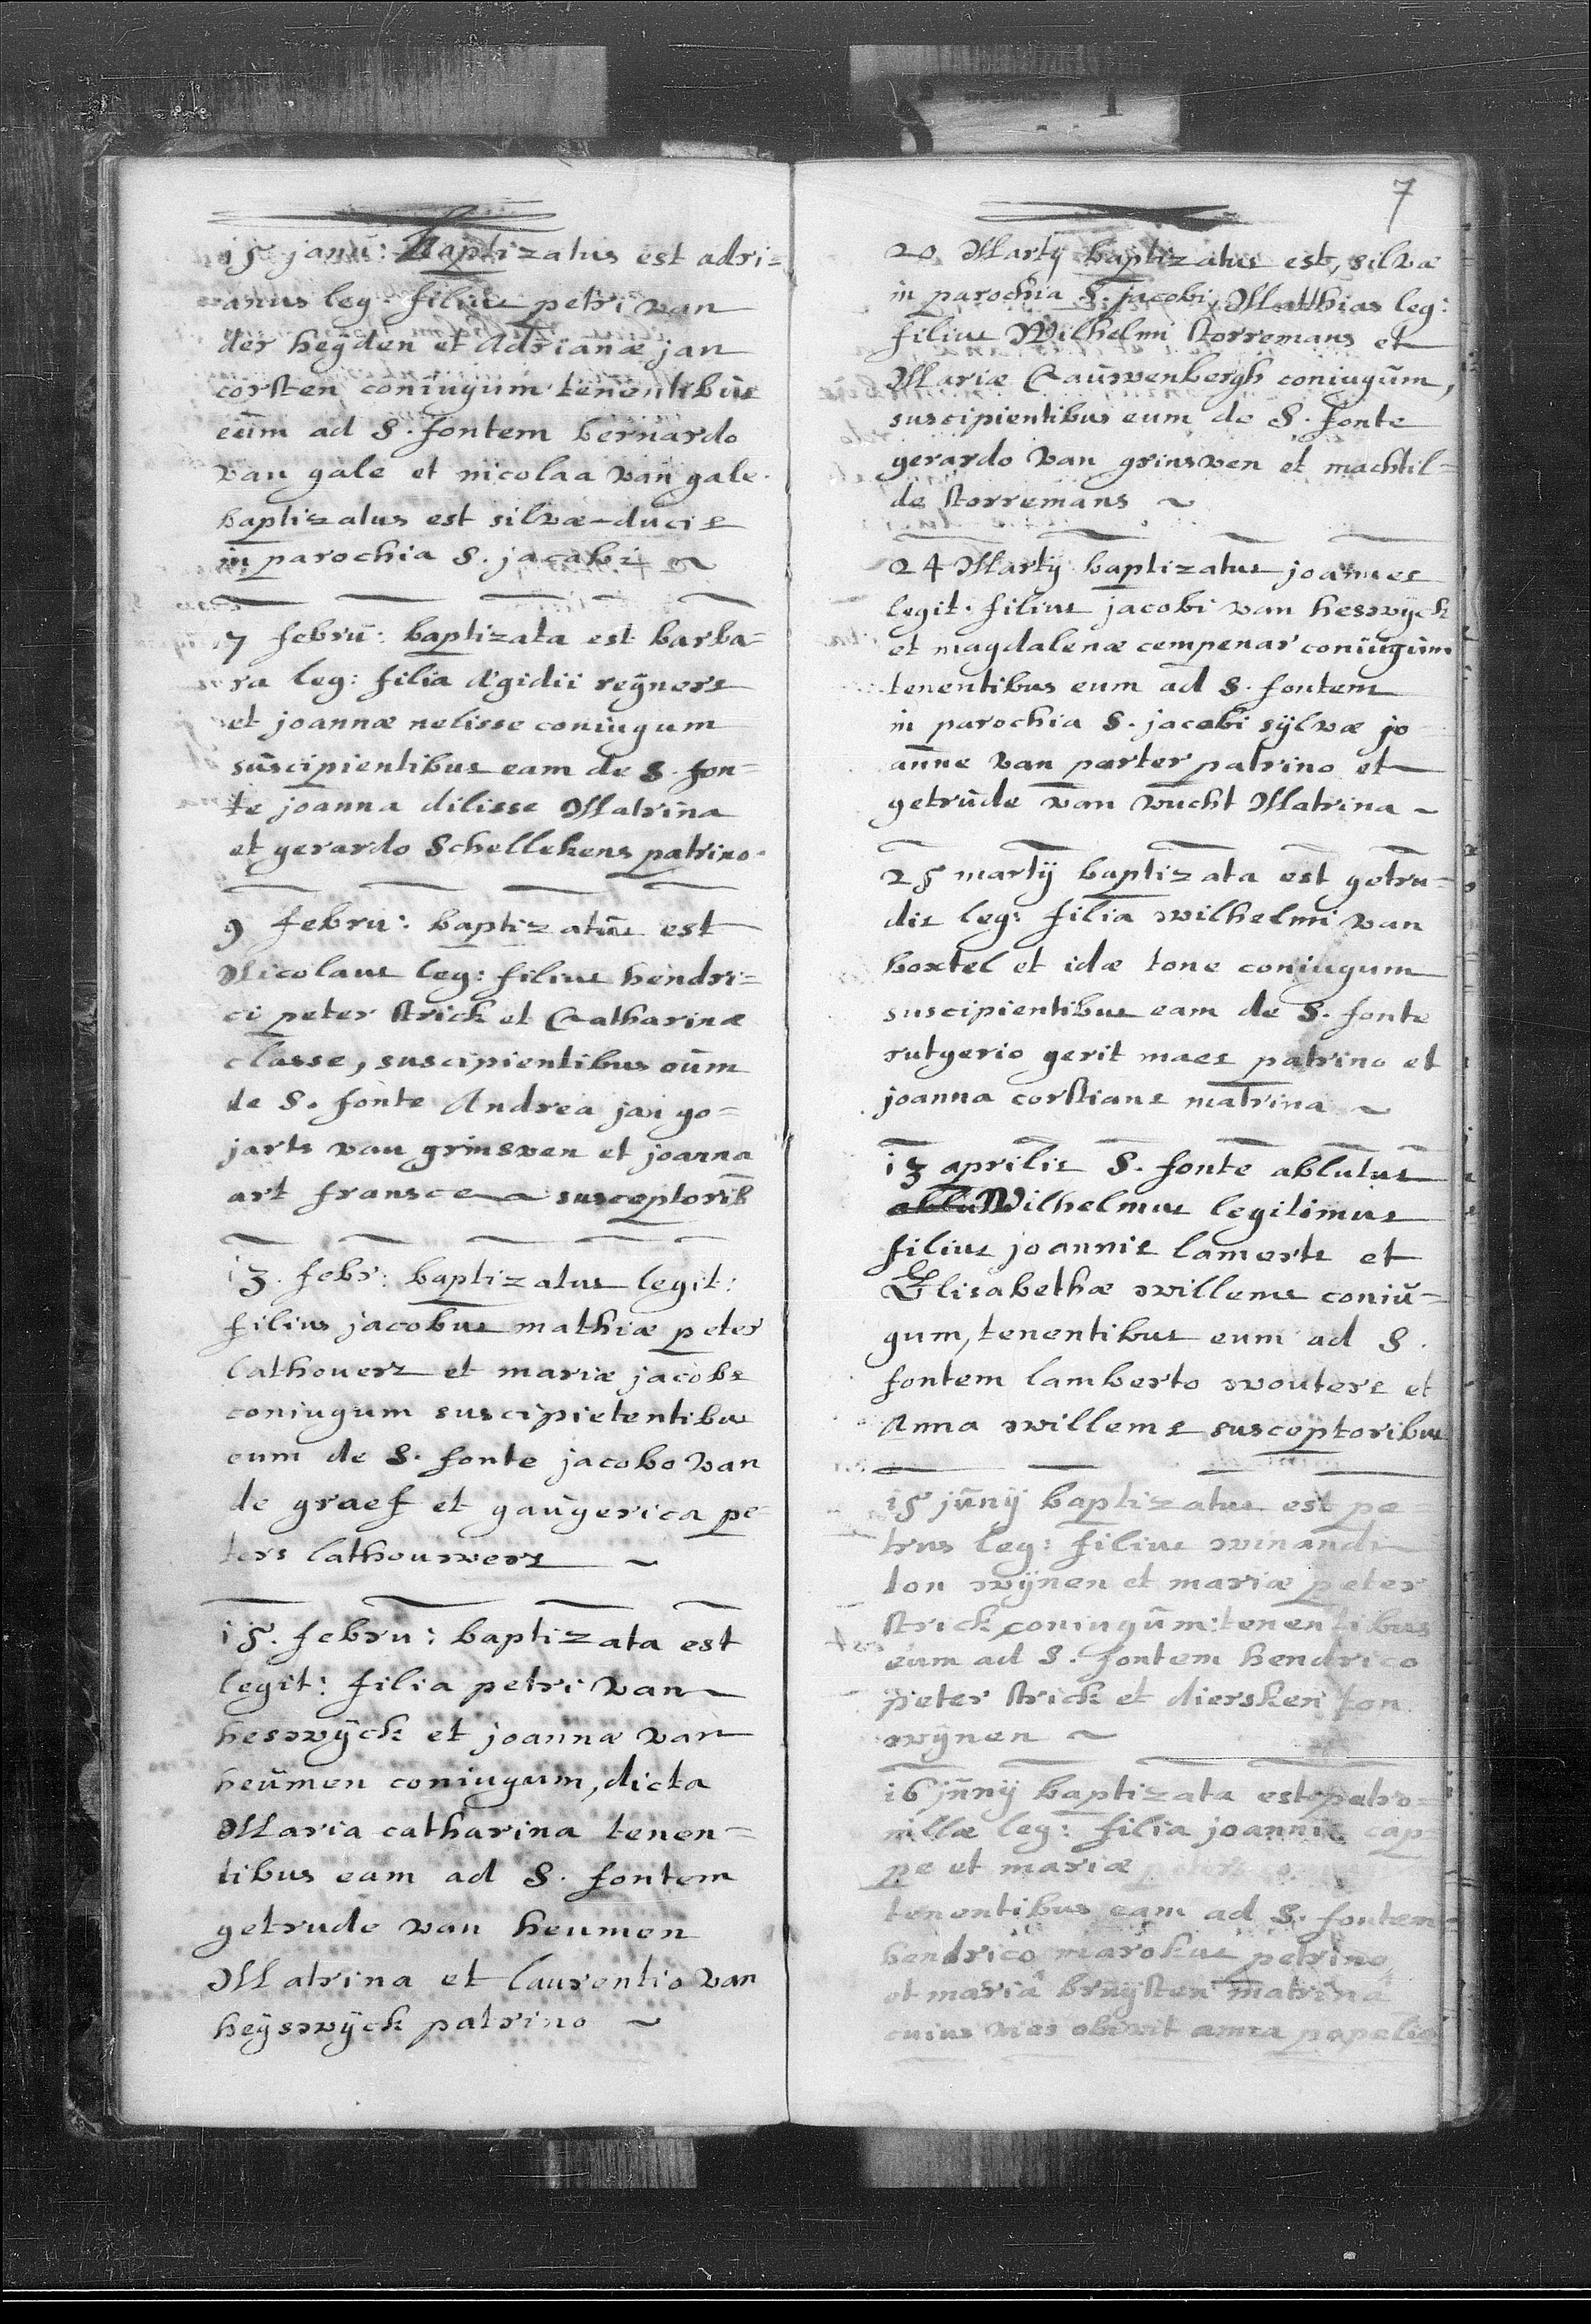 15 janu: Baptizatus est adri=
anus leg: filius petri van
der heÿden et Adrianæ jan
corsten coniugum tenentibus
eum ad S. fontem bernardo
van gale et nicolaa van gale.
baptizatus est silvæ-ducis
in parochia S. jacobi ~
7 febru: baptizata est barba=
ra leg: filia Ægidii reÿners
et joannæ nelisse coniugum
suscipientibus eam de S. fon=
te joanna dilisse Matrina
et gerardo Schellekens patrino.
9 febru: baptizatus est
Nicolaus leg: filius hendri=
ci peter strick et Catharinæ
classe, suscipientibus eum
de S. fonte Andrea jan go=
jarts van grinsven et joanna
art fransce ~ susceptorib
13. febr: baptizatus legit:
filius jacobus mathiæ peter
lathouers et mariæ jacobs
coniugum suscipietentibus
eum de S. fonte jacobo van
de graef et gaugerica pe
ters lathouwers ~
15. febru: baptizata est
legit: filia petri van
heswÿck et joannæ van
heumen coniugum, dicta
Maria catharina tenen=
tibus eam ad S. fontem
getrude van heumen
Matrina et laurentio van
heÿswÿck patrino ~
7
20 Martÿ baptizatus est, silvæ
in parochia S. jacobi, Matthias leg:
filius Wilhelmi storremans et
Mariæ Cauwenbergh coniugum,
suscipientibus eum de S. fonte
gerardo van grinsven et machtil=
de storremans ~
24 Martÿ baptizatus joannes
legit. filius jacobi van heswÿck
et magdalenæ cempenar coniugum
tenentibus eum ad S. fontem
in parochia S. jacobi sÿlvæ jo
anne van parter patrino et
getrude van vucht Matrina ~
25 martÿ baptizata est getru=
dis leg: filia wilhelmi van
boxtel et idæ tone coniugum
suscipientibus eam de S. fonte
rutgerio gerit maes patrino et
joanna corstians matrina ~
13 aprilis S. fonte ablutus
ablu Wilhelmus legitimus
filius joannis lamerts et
Elisabethæ willems coniu=
gum, tenentibus eum ad S.
fontem lamberto wouters et
Anna willems susceptoribus
15 junÿ baptizatus est pe=
trus leg: filius winandi
ton wÿnen et mariæ peter
strick coniugum: tenentibus
eum ad S. fontem hendrico
pieter strick et diersken ton
wÿnen ~
16 junÿ baptizata est petro=
nillæ leg: filia joannis cap=
pe et mariæ peters
tenentibus eam ad S. fontem
hendrico marokus petrino
et maria bruÿsten matrina
cuius vices obivit anna papelis